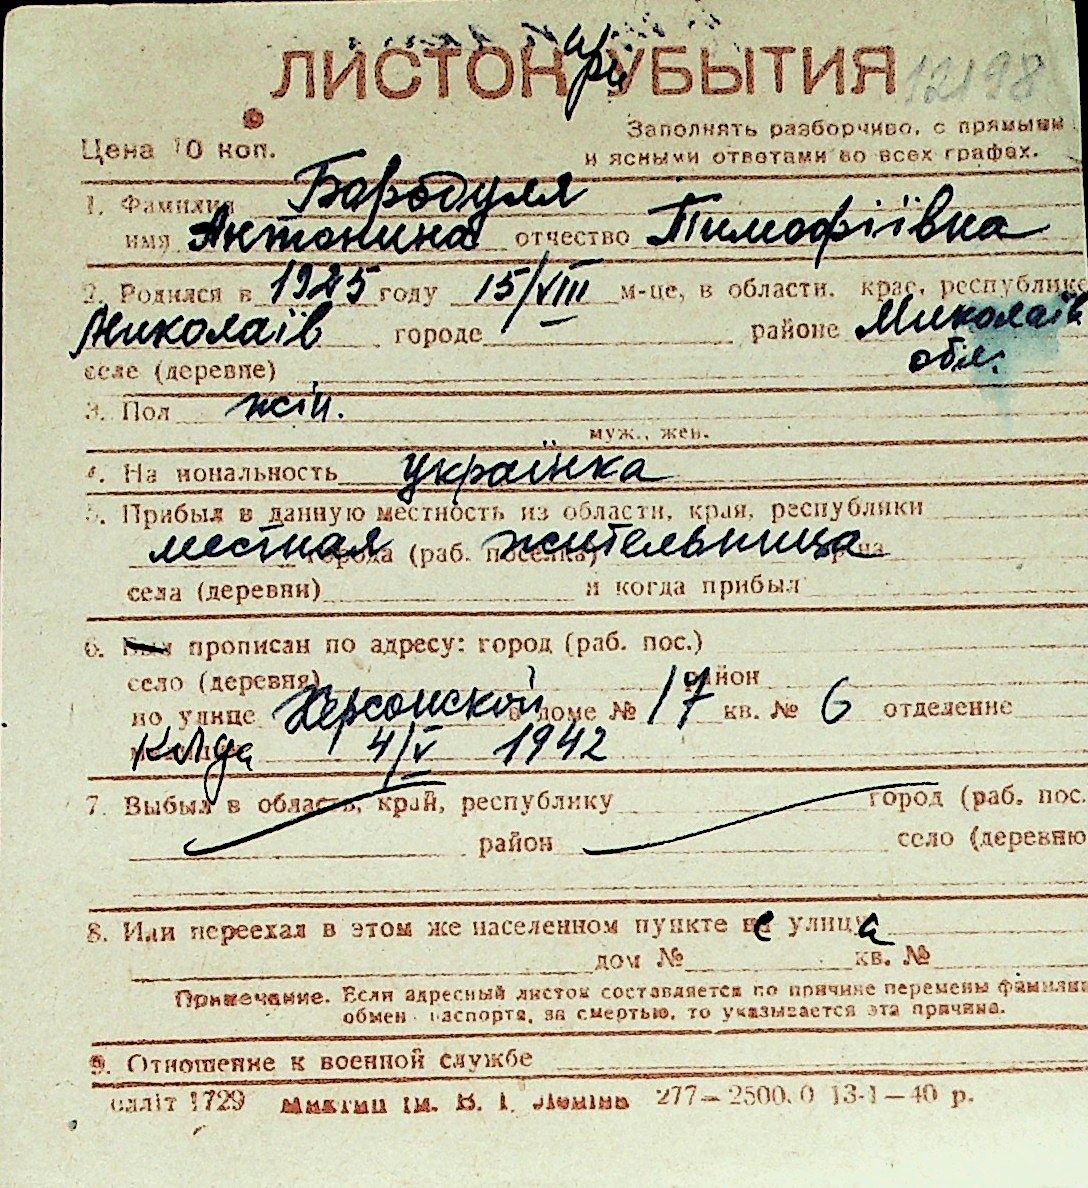 ЛИСТОК при УБЫТИЯ 12198
Цена 10 коп.
Заполнять разборчиво, с прямыми
и ясными ответами во всех графах.
1. Фамилия Бородуля
имя Антонина отчество Тимофіївна
2. Родился в 1925 году 15/VIII м-це, в области, крае, республике
Миколаїв городе районе Миколаїв
обл.
селе (деревне)
3. Пол жін.
муж., жен.
4. Национальность українка
5. Прибыл в данную местность из области, края, республики
местная города (раб. поселка) жительница
села (деревни) и когда прибыл
6. Был прописан по адресу: город (раб. пос.)
село (деревня) район
по улице Херсонской в доме № 17 кв. № 6 отделение
4/V 1942
7. Выбыл в область, край, республику город (раб. пос.
район село (деревню
8. Или переехал в этом же населенном пункте не улица
дом № кв. №
Примечание. Если адресный листок составляется по причине перемены фамилии
обмен паспорта, за смертью, то указывается эта причина.
9. Отношение к военной службе
1729 им. В. І. Леніна 277—2500.0 13-1—40 р.